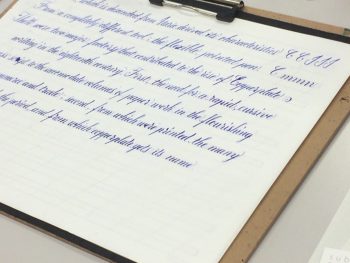 which is descended from Uncial derived its characteristics EEJJJ
From a completely different tool - the flexible pointed pen. Emmm
There were two major factors that contributed to the rise of Copperplate
writing in the eighteenth century. First, the need for a rapid, cursive
is to the accumulated volumes of paper work in the flourishing
commerce and trade; second, from which were printed the many
the period, and from which copperplate gets its name
sub